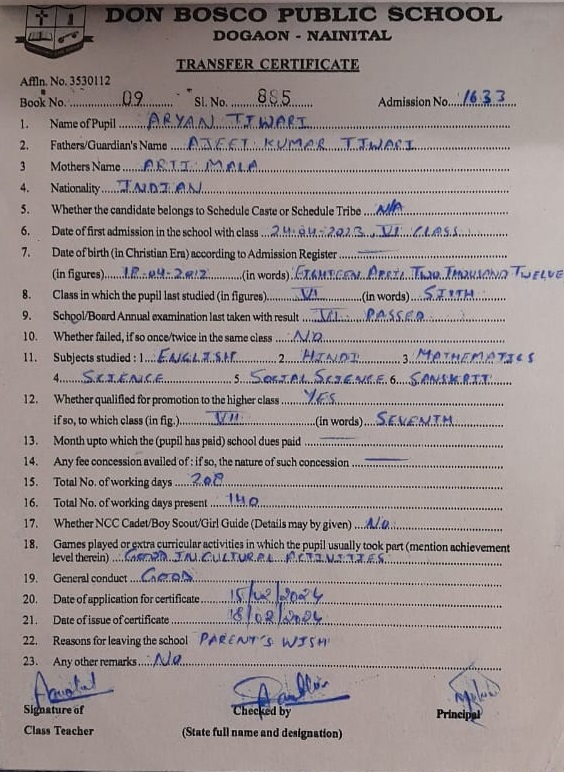 DON BOSCO PUBLIC SCHOOL
DOGAON - NAINITAL
TRANSFER CERTIFICATE
Affln. No. 3530112
Book No. 09 Sl. No. 885 Admission No. 1633
1. Name of Pupil ARYAN TIWARI
2. Fathers/Guardian's Name AJEET KUMAR TIWARI
3 Mothers Name ARTI MALA
4. Nationality INDIAN
5. Whether the candidate belongs to Schedule Caste or Schedule Tribe N/A
6. Date of first admission in the school with class 24-04-2023, VI CLASS
7. Date of birth (in Christian Era) according to Admission Register
(in figures) 18-04-2012 (in words) EIGHTEEN APRIL TWO THOUSAND TWELVE
8. Class in which the pupil last studied (in figures) VI (in words) SIXTH
9. School/Board Annual examination last taken with result VI PASSED
10. Whether failed, if so once/twice in the same class NO
11. Subjects studied : 1. ENGLISH 2. HINDI 3. MATHEMATICS
4. SCIENCE 5. SOCIAL SCIENCE 6. SANSKRIT
12. Whether qualified for promotion to the higher class YES
if so, to which class (in fig.) VII (in words) SEVENTH
13. Month upto which the (pupil has paid) school dues paid
14. Any fee concession availed of : if so, the nature of such concession
15. Total No. of working days 208
16. Total No. of working days present 140
17. Whether NCC Cadet/Boy Scout/Girl Guide (Details may by given) No
18. Games played or extra curricular activities in which the pupil usually took part (mention achievement
level therein) GOOD IN CULTURAL ACTIVITIES
19. General conduct GOOD
20. Date of application for certificate 15/02/2024
21. Date of issue of certificate 18/02/2024
22. Reasons for leaving the school PARENT'S WISH
23. Any other remarks No
Signature of Checked by Principal
Class Teacher (State full name and designation)